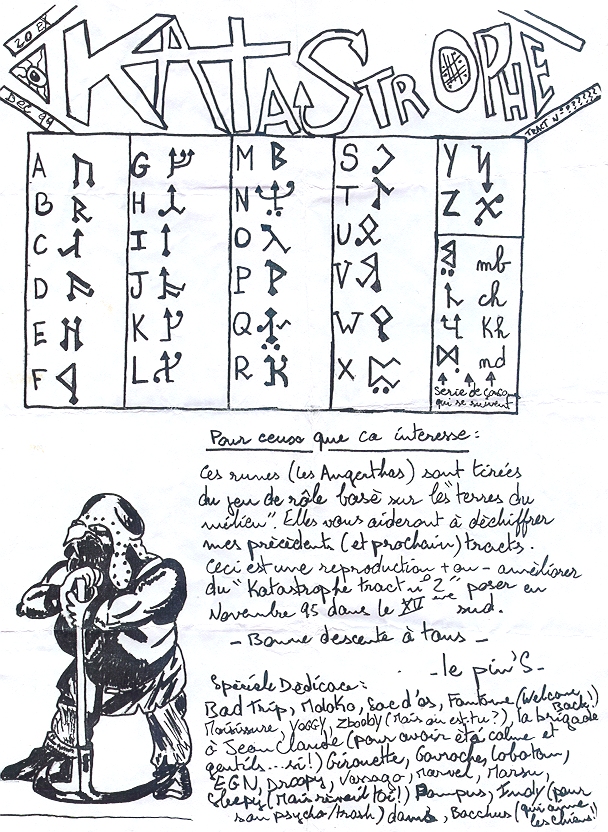 20 EX
DEC 99
KATASTROPHE
TRACT N° ?????
A
B
C
D
E
F
G
H
I
J
K
L
M
N
O
P
Q
R
S
T
U
V
W
X
Y
Z
mb
ch
Kh
nd
Série de
qui se suivent
Pour ceux que ca interesse :
Ces runes (les Angerthas) sont tirées
du jeu de rôle basé sur les "terres du
milieu". Elles vous aideront à déchiffrer
mes précédents (et prochain) tracts.
Ceci est une reproduction + ou - améliorer
du "Katastrophe tract n° 2" poser en
Novembre 95 dans le XIV ème sud.
- Bonne descente à tous -
- le pin'S -
Spéciale Dédicace :
Bad Trip, Moloko, Sac d'os, Fantôme (Welcome Back!)
Moisissure, Yoggy, Zbooby (Mais où est-tu?), la brigade
à Jean Claude (pour avoir été calme et
gentils...si!) Girouette, Gavroche, Lobotom,
EGN, Droopy, Vassago, Marvel, Marsu,
Sleepy (Mais réveil toi!) Pampus, Indy (pour
son psycho/trash) dams, Bacchus (qui aime les chiens!)